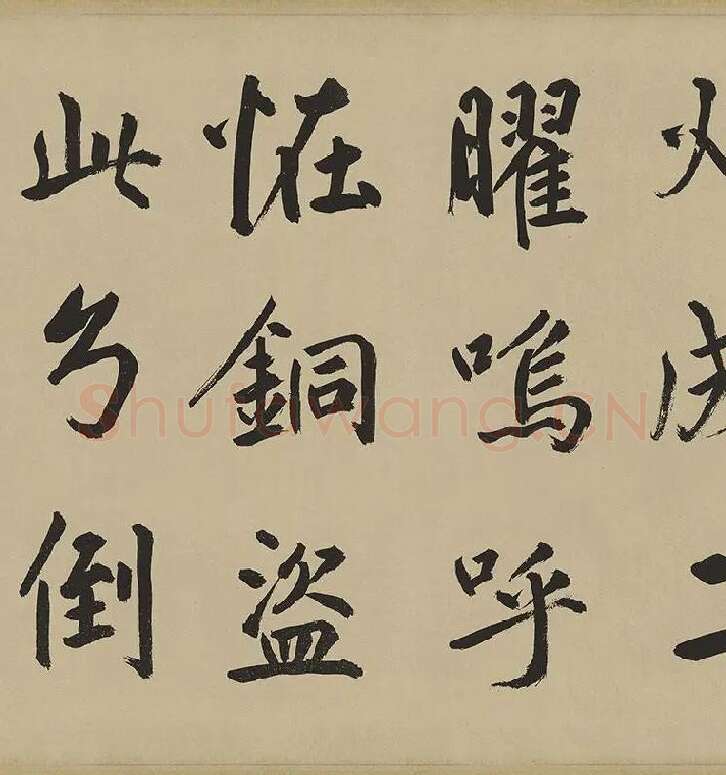 曜嗚呼
恠銅盜
此倒
Shufawang.CN